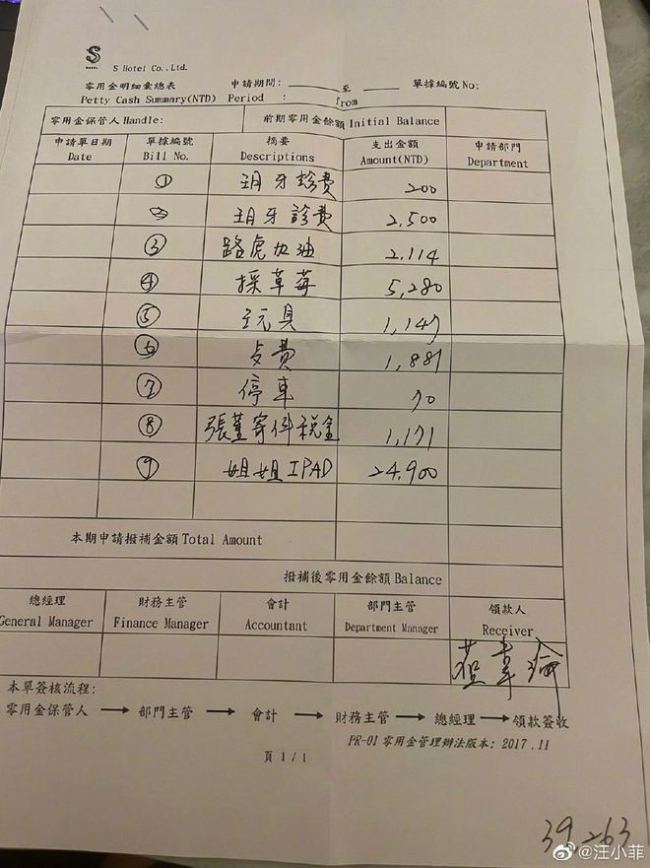 S
S Hotel Co.,Ltd.
零用金明細彙總表 申請期間: 至 單據編號No:
Petty Cash Summary(NTD) Period : from
零用金保管人Handle: 前期零用金餘額Initial Balance
申請單日期 單據編號 摘要 支出金額 申請部門
Date Bill No. Descriptions Amount(NTD) Department
① 玥牙診費 200
② 玥牙診費 2,500
③ 路虎加油 2,114
④ 採草莓 5,280
⑤ 玩具 1,147
⑥ 費 1,881
⑦ 停車 70
⑧ 張董寄件稅金 1,171
⑨ 姐姐IPAD 24,900
本期申請撥補金額Total Amount
撥補後零用金餘額Balance
總經理 財務主管 會計 部門主管 領款人
General Manager Finance Manager Accountant Department Manager Receiver
本單簽核流程:
零用金保管人 → 部門主管 → 會計 → 財務主管 → 總經理 → 領款簽收
PR-01零用金管理辦法版本: 2017.11
頁1/1
39,263
@汪小菲